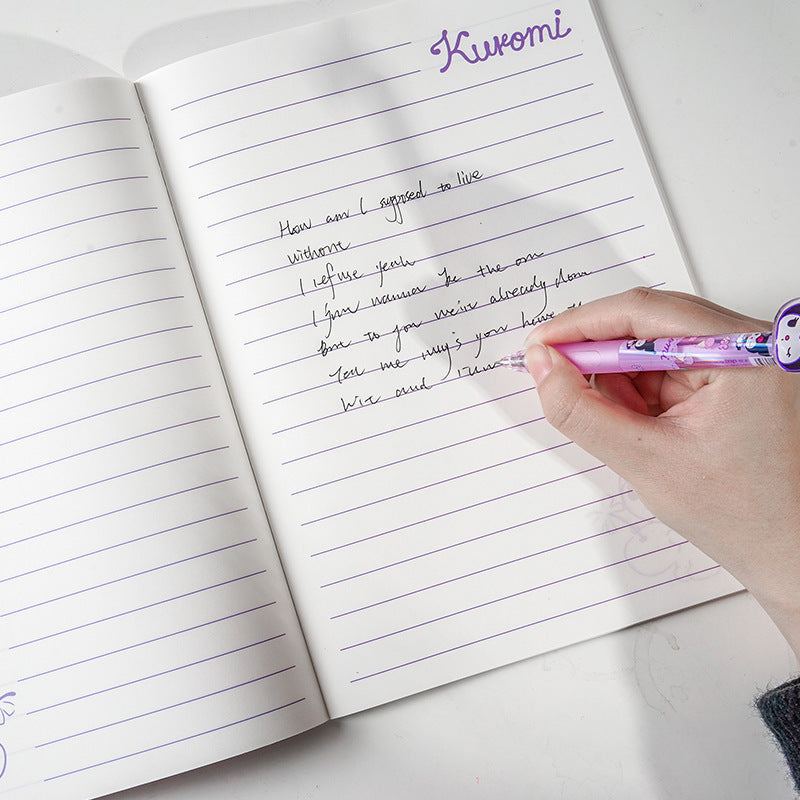 Kuromi
How am I supposed to live
without
I refuse yeah
I jun wanna be the on
but to you we're already done
Tell me why's you have th
and